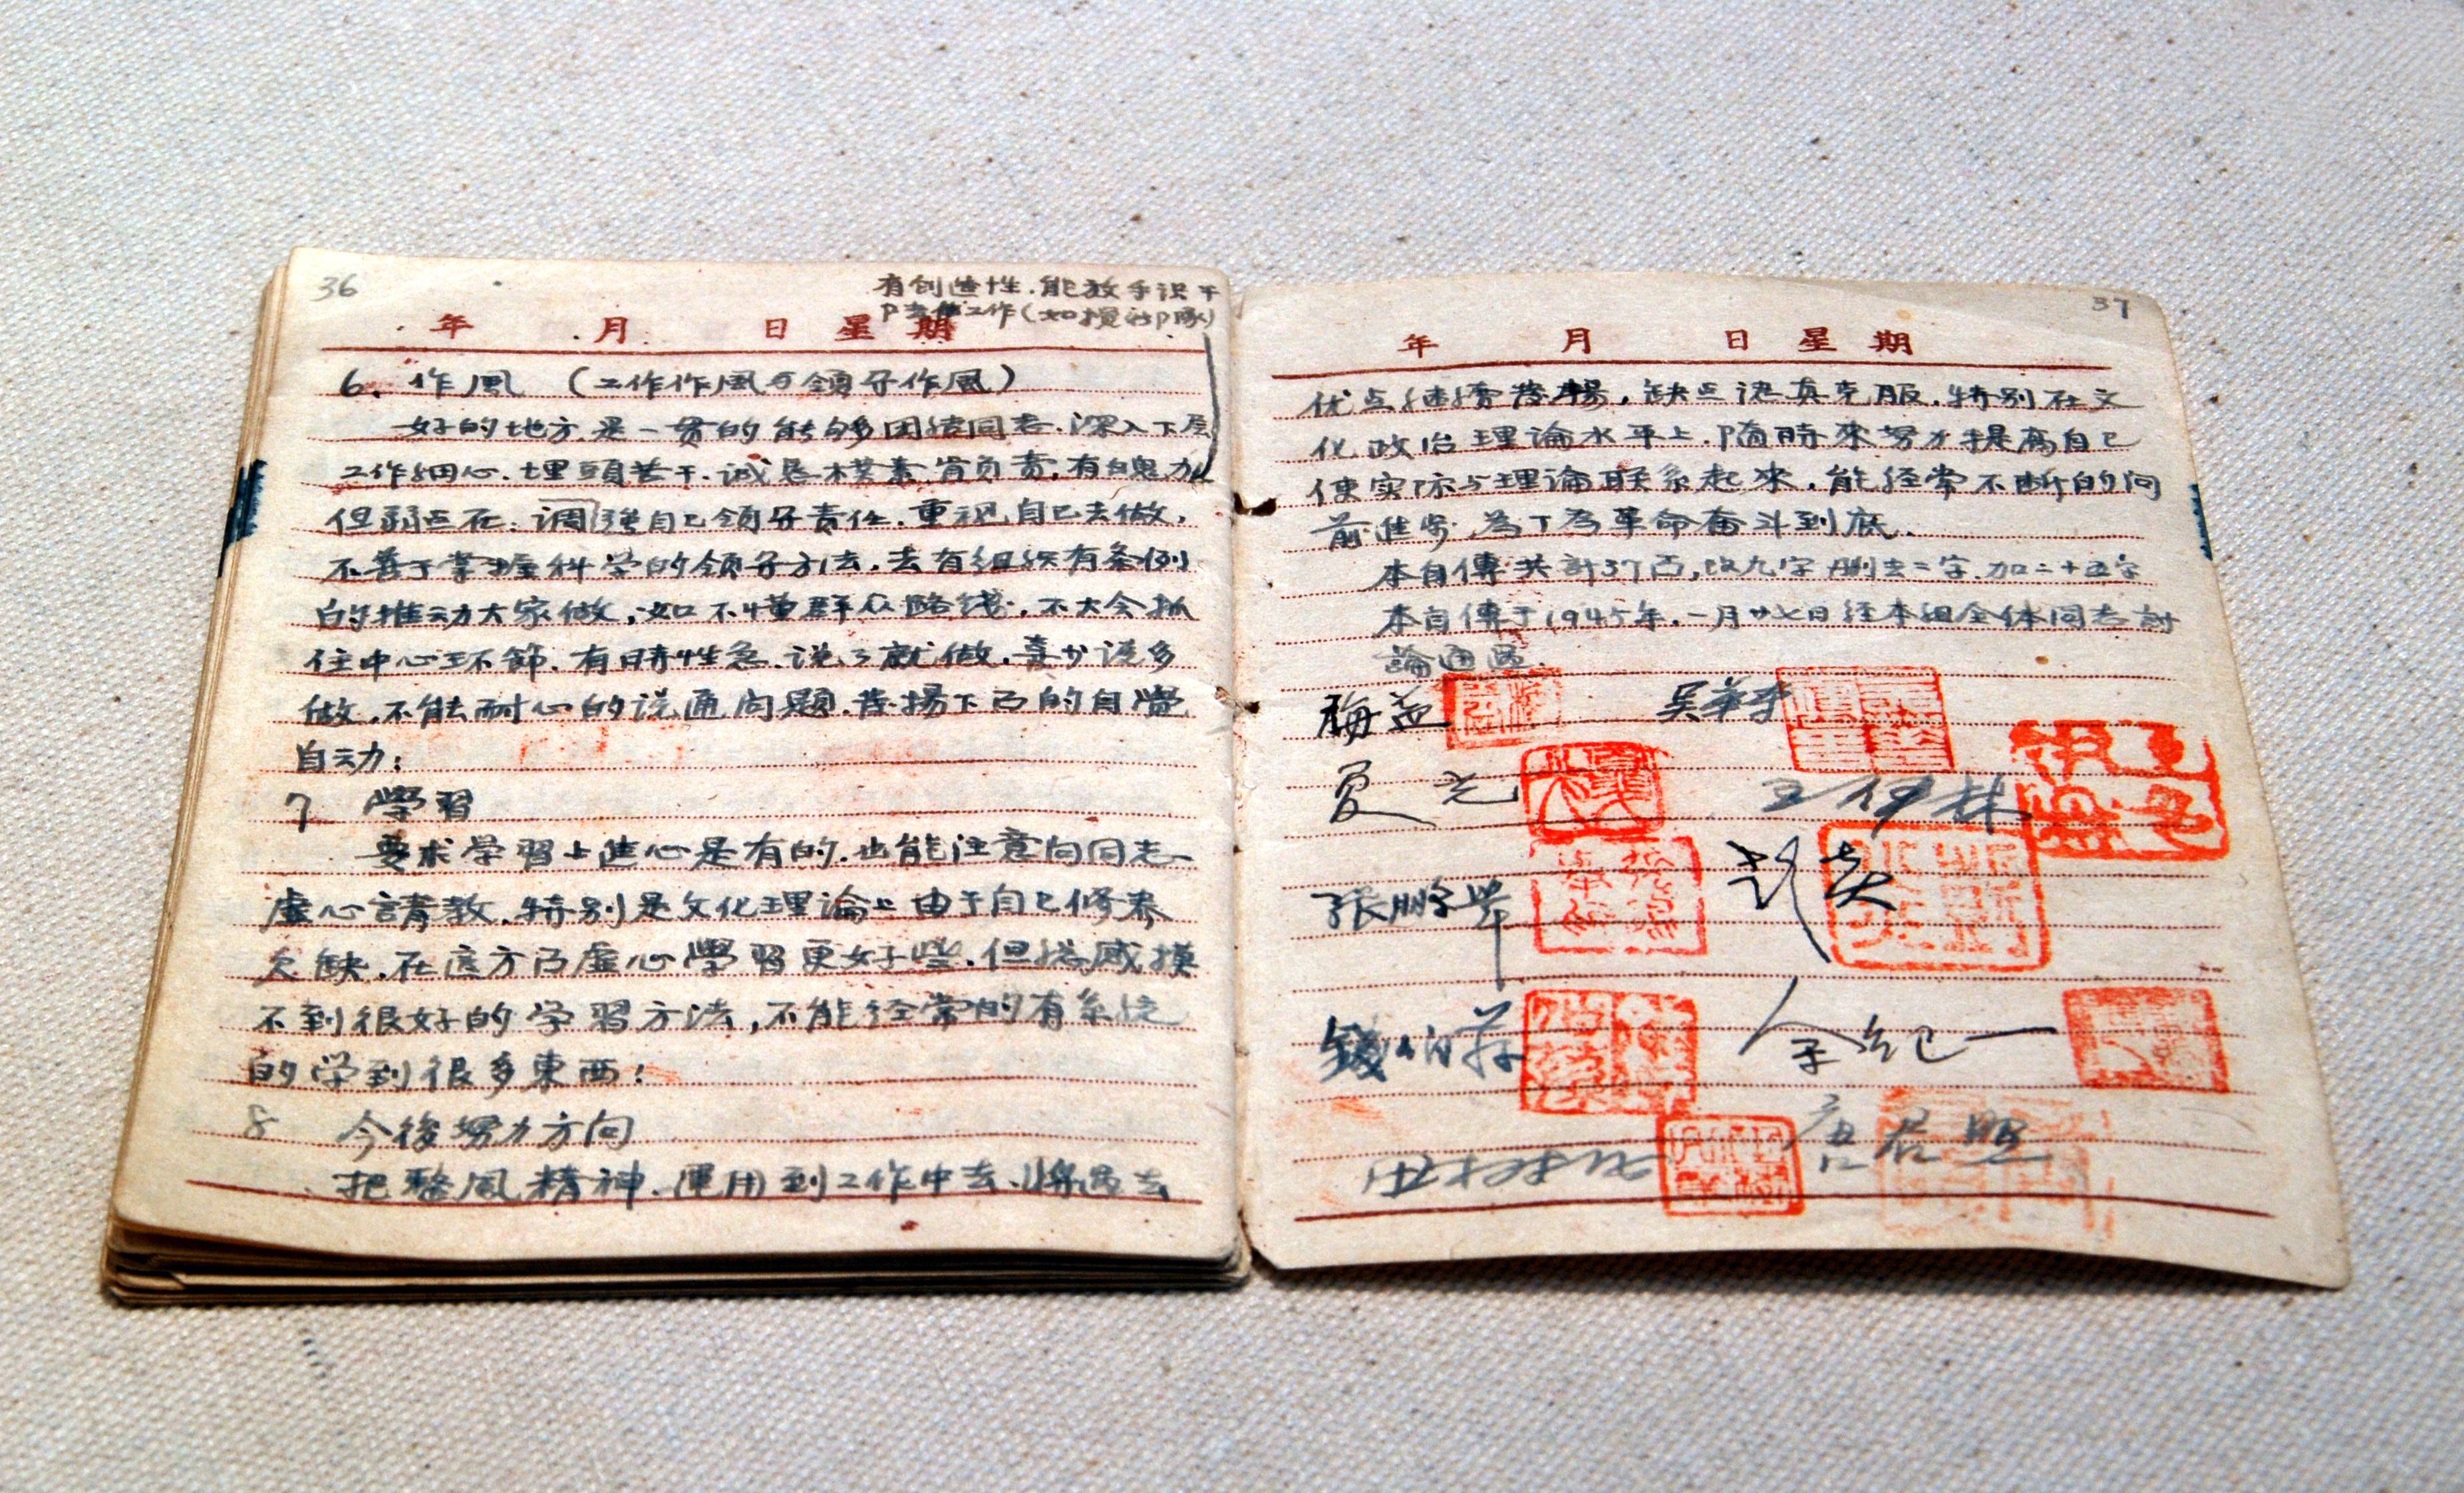 36
有创造性.能放手识干
部去做工作(如摸the部隊)
年 月 日 星 期
6. 作風 (工作作風与领导作風)
好的地方是一贯的能够团结同志.深入下层
工作细心.埋頭苦干.诚恳樸素肯负责,有魄力
但弱点在:调强自己领导责任.重视自己去做,
不善于掌握科学的领导方法.去有组织有条例
的推动大家做,如不懂群众路线,不大会抓
住中心环節.有時性急.说了就做.喜少说多
做.不能耐心的说通问题.發揚下面的自覺
自动;
7 學習
要求学習上進心是有的.也能注意向同志
虚心請教.特别是文化理論上由于自己修养
欠缺.在這方面虚心學習更好些.但捻感摸
不到很好的学習方法,不能经常的有系统
的学到很多東西;
8 今後努力方向
把整風精神.運用到工作中去.將過去
37
年 月 日 星 期
优点继續發揚,缺点认真克服.特别在文
化政治理論水平上.随時來努力提高自己
使实际与理論联系起來.能经常不断的向
前進步.为了为革命奋斗到底.
本自傳共計37页,改九字刪去二字.加二十五字
本自傳于1945年.一月廿七日经本组全体同志討
論通過.
梅益 吴華
夏光 王伊林
張鵬举 彭炎
錢伯蓀 金紀一
田 唐君照